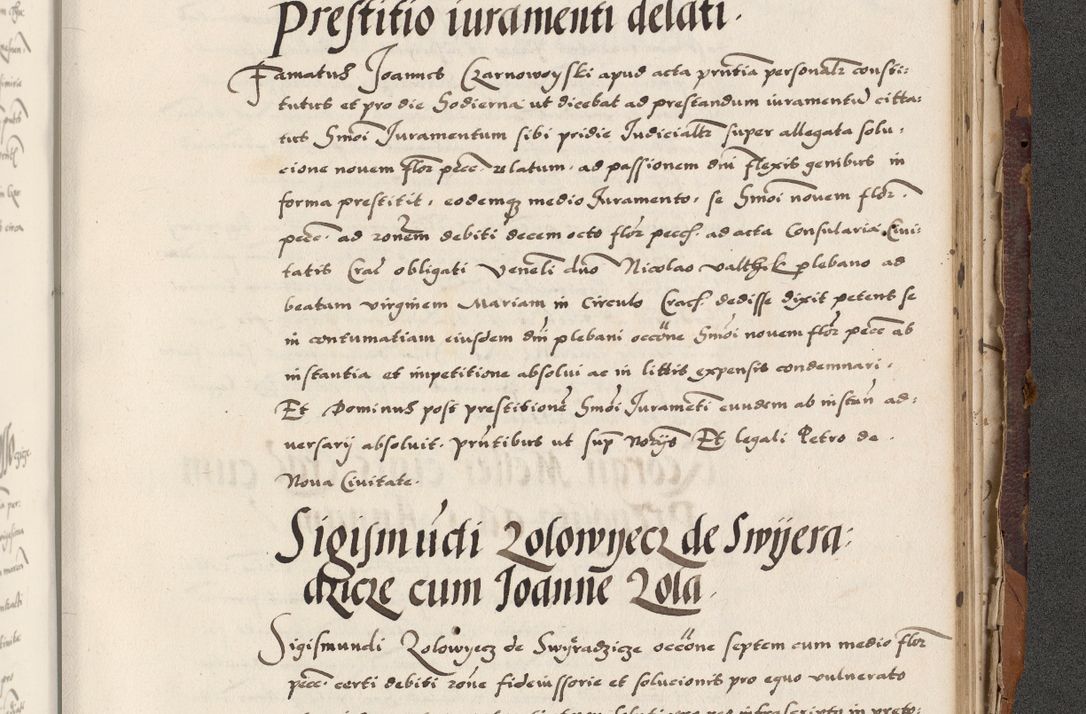 Prestitio iuramenti delati.
Famatus Joannes Czarnowoyski apud acta prntia personalr consti:
tutus et pro die hodierna ut dicebat ad prestandum iuramentu citta:
tus Smoi Juramentum sibi pridie Judicialr super allegata solu,
cione novem flor pecce relatum, ad passionem dni flexis genibus in
forma prestitit, eodemq medio Juramento, se Smoi novem flor,
pecce. ad ronem debiti decem octo flor pecc. ad acta Consularia Civi:
tatis Crac obligati Veneli dno Nicolao valthek plebano ad
beatam virginem Mariam in Circulo Crac. dedisse dixit petens se
in contumatiam eiusdem dni plebani occone Smoi novem flor pecce ab
instantia et impetitione absolui ac in littis expensis condemnari,
Et Dominus post prestitione Smoi Juramcti eundem ab instan ad,
versarij absoluit. prntibus ut sup Norijs Et legali Petro de.
Nova Civitate.
Sigismudi Zolowyecz de Swijera:
dzicze cum Joanne Zola.
Sigismundi Zolowyecz de Swyradzicze occone septem cum medio flor
pecce. certi debiti rone fideiussorie et solucionis pro equo vulnerato